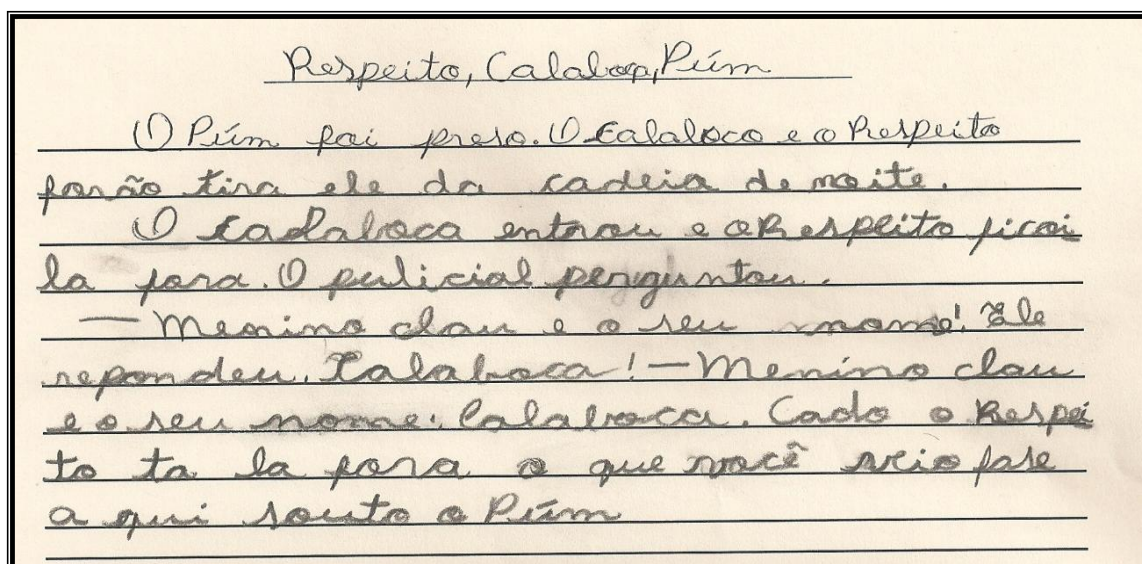 Respeito, Calaboca, Púm
O Púm foi preso. O Calaboco e o Respeito
forão tira ele da cadeia de noite.
O Calaboca entrou e o Respeito ficoi
la fora. O pulicial perguntou.
— Menino clau e o seu nome! Ele
repondeu. Calaboca! — Menino clau
e o seu nome. Calaboca. Cado o Respei
to ta la fora o que você veio fase
a qui souto o Púm